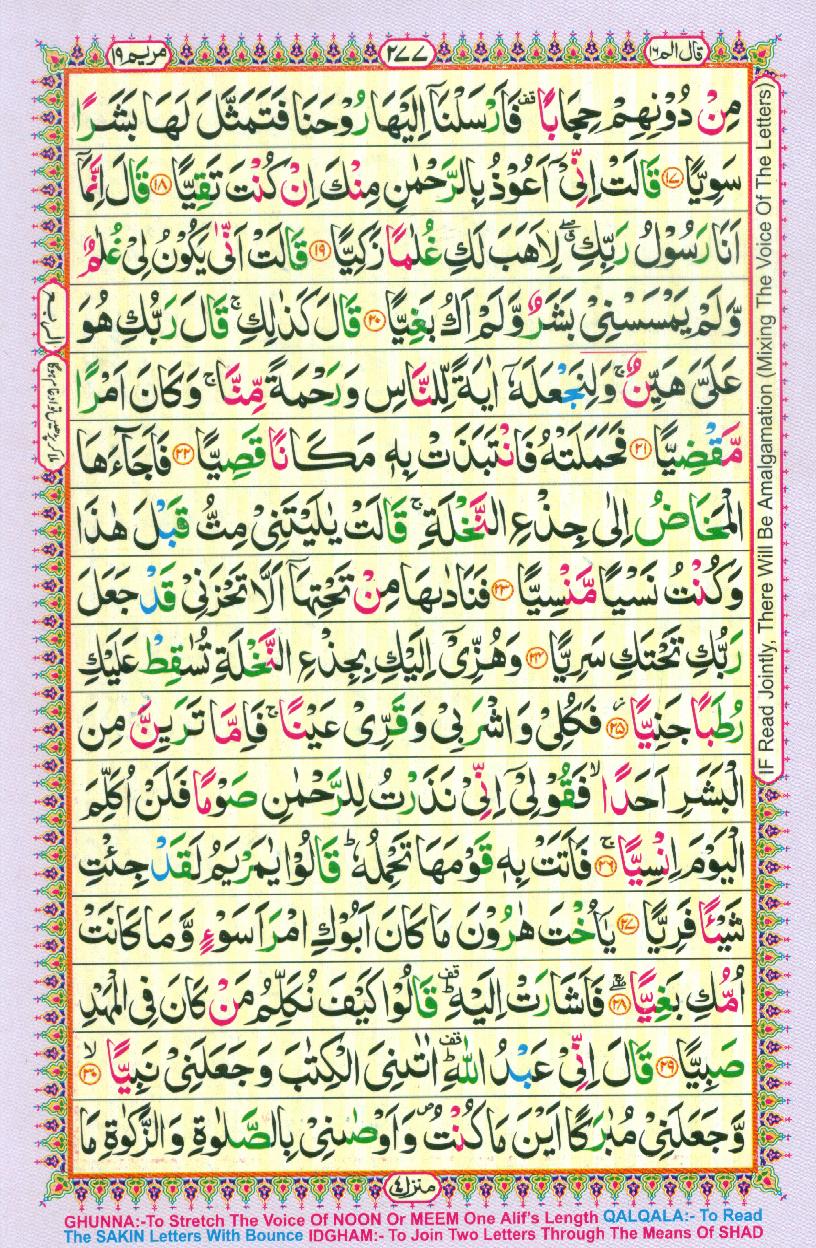 قال الم ١٦
٢٧٧
مريم ١٩
مِنْ دُوْنِهِمْ حِجَابًا ۪ۖ فَاَرْسَلْنَاۤ اِلَيْهَا رُوْحَنَا فَتَمَثَّلَ لَهَا بَشَرًا
سَوِيًّا ﴿١٧﴾ قَالَتْ اِنِّيْۤ اَعُوْذُ بِالرَّحْمٰنِ مِنْكَ اِنْ كُنْتَ تَقِيًّا ﴿١٨﴾ قَالَ اِنَّمَاۤ
اَنَا رَسُوْلُ رَبِّكِ ۖۗ لِاَهَبَ لَكِ غُلٰمًا زَكِيًّا ﴿١٩﴾ قَالَتْ اَنّٰى يَكُوْنُ لِيْ غُلٰمٌ
وَّلَمْ يَمْسَسْنِيْ بَشَرٌ وَّلَمْ اَكُ بَغِيًّا ﴿٢٠﴾ قَالَ كَذٰلِكِ ۚ قَالَ رَبُّكِ هُوَ
عَلَيَّ هَيِّنٌ ۚ وَلِنَجْعَلَهٗۤ اٰيَةً لِّلنَّاسِ وَرَحْمَةً مِّنَّا ۚ وَكَانَ اَمْرًا
مَّقْضِيًّا ﴿٢١﴾ فَحَمَلَتْهُ فَانْتَبَذَتْ بِهٖ مَكَانًا قَصِيًّا ﴿٢٢﴾ فَاَجَآءَهَا
الْمَخَاضُ اِلٰى جِذْعِ النَّخْلَةِ ۚ قَالَتْ يٰلَيْتَنِيْ مِتُّ قَبْلَ هٰذَا
وَكُنْتُ نَسْيًا مَّنْسِيًّا ﴿٢٣﴾ فَنَادٰىهَا مِنْ تَحْتِهَاۤ اَلَّا تَحْزَنِيْ قَدْ جَعَلَ
رَبُّكِ تَحْتَكِ سَرِيًّا ﴿٢٤﴾ وَهُزِّيْۤ اِلَيْكِ بِجِذْعِ النَّخْلَةِ تُسٰقِطْ عَلَيْكِ
رُطَبًا جَنِيًّا ﴿٢٥﴾ فَكُلِيْ وَاشْرَبِيْ وَقَرِّيْ عَيْنًا ۚ فَاِمَّا تَرَيِنَّ مِنَ
الْبَشَرِ اَحَدًا ۙ فَقُوْلِيْۤ اِنِّيْ نَذَرْتُ لِلرَّحْمٰنِ صَوْمًا فَلَنْ اُكَلِّمَ
الْيَوْمَ اِنْسِيًّا ﴿٢٦﴾ ۚ فَاَتَتْ بِهٖ قَوْمَهَا تَحْمِلُهٗ ؕ قَالُوْا يٰمَرْيَمُ لَقَدْ جِئْتِ
شَيْـًٔا فَرِيًّا ﴿٢٧﴾ يٰۤاُخْتَ هٰرُوْنَ مَا كَانَ اَبُوْكِ امْرَاَ سَوْءٍ وَّمَا كَانَتْ
اُمُّكِ بَغِيًّا ﴿٢٨﴾ ۖۚ فَاَشَارَتْ اِلَيْهِ ؕ قف قَالُوْا كَيْفَ نُكَلِّمُ مَنْ كَانَ فِي الْمَهْدِ
صَبِيًّا ﴿٢٩﴾ قَالَ اِنِّيْ عَبْدُ اللّٰهِ ؕ قف اٰتٰىنِيَ الْكِتٰبَ وَجَعَلَنِيْ نَبِيًّا ﴿٣٠﴾ ۙ
وَّجَعَلَنِيْ مُبٰرَكًا اَيْنَ مَا كُنْتُ ۪ وَاَوْصٰىنِيْ بِالصَّلٰوةِ وَالزَّكٰوةِ مَا
الربع
IF Read Jointly, There Will Be Amalgamation (Mixing The Voice Of The Letters)
منزل ٤
GHUNNA:-To Stretch The Voice Of NOON Or MEEM One Alif's Length QALQALA:- To Read
The SAKIN Letters With Bounce IDGHAM:- To Join Two Letters Through The Means Of SHAD